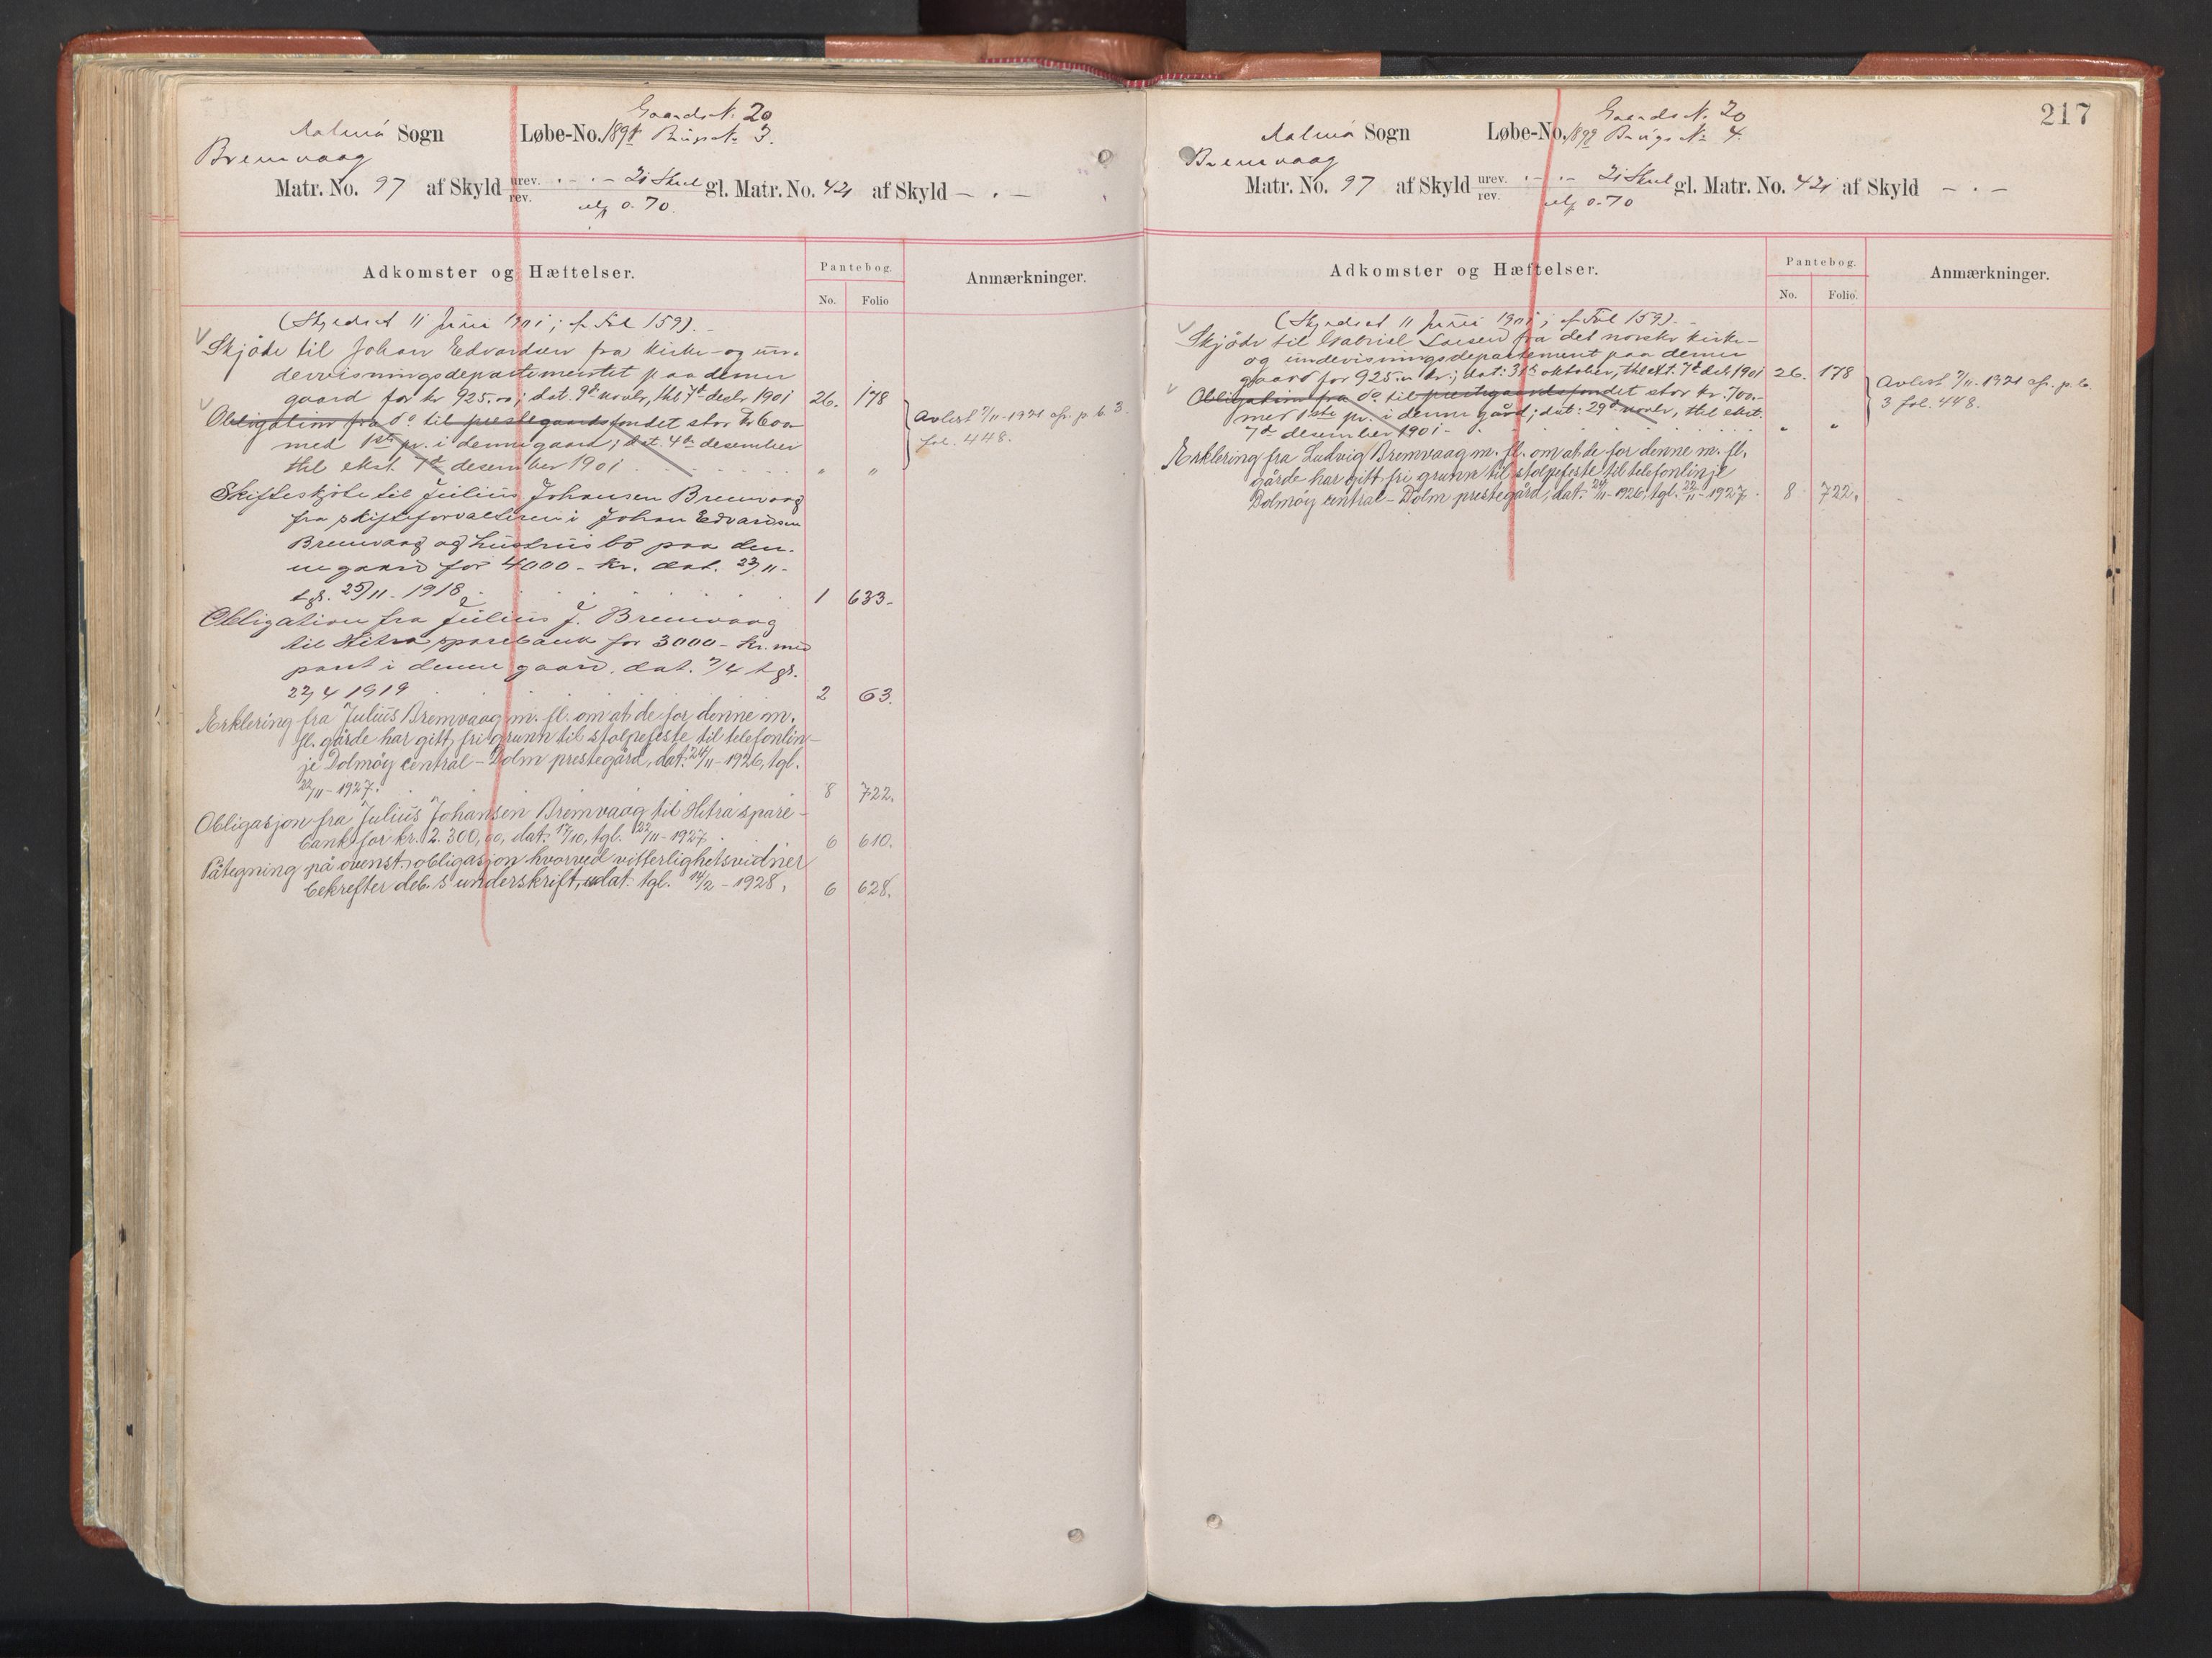 Gaards N. 20
Sogn Løbe-No. 189 Brugs N. 3.
Bremvaag
Matr. No. 97 af Skyld urev. . - . - 21 Skil gl. Matr. No. 42i af Skyld - . -
rev. 0.70.
Adkomster og Hæftelser. Pantebog. Anmærkninger.
No. Folio
(Skyldsat 11 Juni 1901; cf. Fol 159).
Skjöde til Johan Edvardsen fra kirke- og un-
dervisningsdepartementet paa denne
gaard for kr 925.00; dat. 9de novbr, thl 7de decbr 1901 26. 178
Obligation fra do til præstegaardsfondet stor kr 600
med 1ste pr. i denne gaard; dat. 4de desember
thl ekst. 7de desember 1901 " "
Avlest 7/11-1921 p. b. 3.
fol. 448.
Skifteskjöte til Julius Johansen Bremvaag
fra skifteforvalteren i Johan Edvardsen
Bremvaag og hustrus bo paa den-
ne gaard for 4000 - kr. dat. 23/11 -
tgl. 25/11 - 1918. 1 633.
Obligation fra Julius J. Bremvaag
til Hitra sparebank for 3000 - kr. med
pant i denne gaard. dat. 7/4 tgl.
22/4 1919 2 63.
Erklering fra Julius Bremvaag m. fl. om at de for denne m.
fl. gårde har gitt fri grunn til stolpefeste til telefonlin-
je Dolmöy central - Dolm prestegård, dat. 24/11-1926, tgl.
22/11-1927. 8 722.
Obligasjon fra Julius Johansen Bremvaag til Hitra spare-
bank for kr. 2.300,00, dat. 17/10, tgl. 22/11-1927. 6 610.
Påtegning på ovenst. obligasjon hvorved vitterlighetsvidner
bekrefter deb.s underskrift, udat. tgl. 14/2 - 1928. 6 628.
217
Gaards N. 20
Sogn Løbe-No. 189 Brugs No 4.
Bremvaag
Matr. No. 97 af Skyld urev. . - . - 21 Skil gl. Matr. No. 42i af Skyld - . -
rev. 0.70
Adkomster og Hæftelser. Pantebog. Anmærkninger.
No. Folio.
(Skyldsat 11 Juni 1901; cf. Fol 159).
Skjöde til Gabriel Larsen fra det norske kirke-
og undervisningsdepartement paa denne
gaard for 925.00 kr.; dat: 31te oktober, thl ekst. 7de decb 1901 26. 178
Obligation fra do til præstegaardsfondet stor kr. 700.-
med 1ste pr. i denne gård; dat: 29de novbr, thl ekst.
7de desember 1901 - " "
Avlest 7/11-1921 p. b.
3 fol. 448.
Erklering fra Ludvig Bremvaag m. fl. om at de for denne m. fl.
gårde har gitt fri grunn til stolpefeste til telefonlinje
Dolmöy central - Dolm prestegård, dat. 24/11-1926, tgl. 22/11-1927. 8 722.